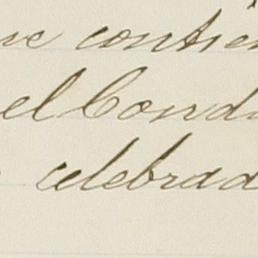 ue contie
el Cond
celebrad